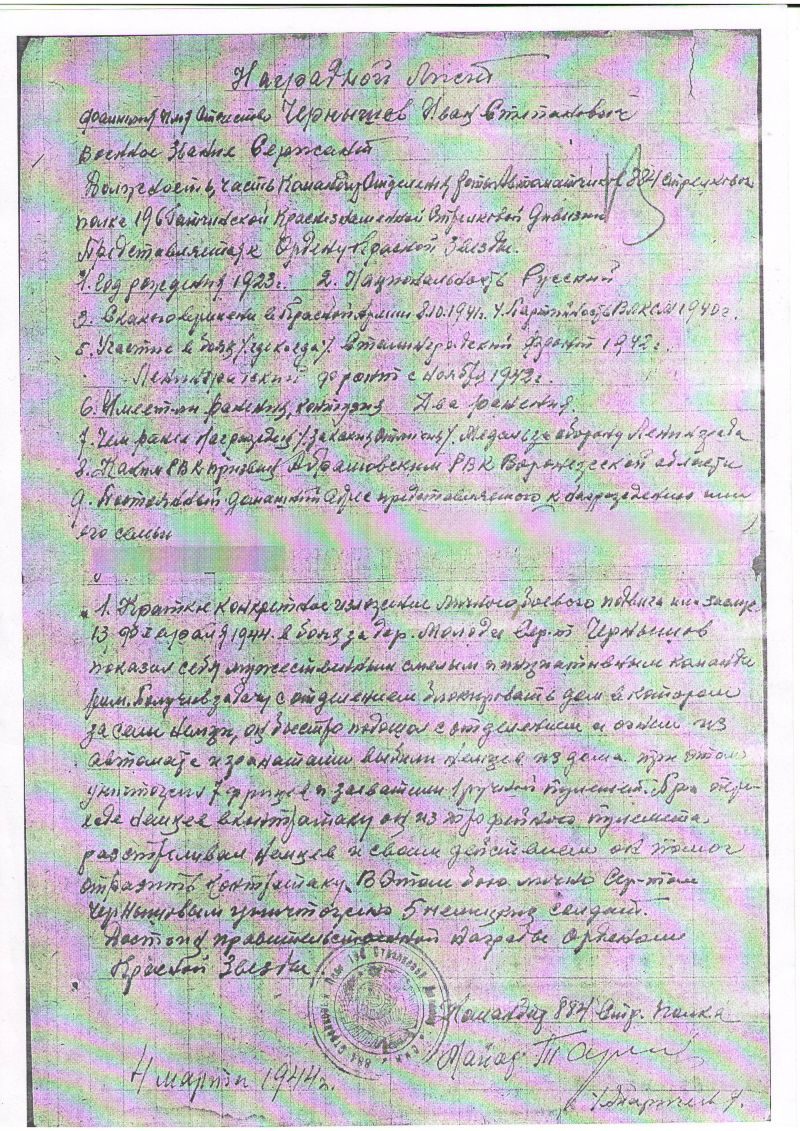 Наградной лист
Фамилия, Имя Отчество Чернышов Иван Степанович
Военное звание Сержант
Должность, часть Командир Отделения роты Автоматчиков 884 Стрелкового
полка 196 Гатчинской Краснознаменной Стрелковой Дивизии
Представляется к Ордену Красной Звезды.
1. Год рождения 1923г. 2. Национальность Русский
3. С какого времени в Красной Армии 8.10.1941г. 4. Партийность ВЛКСМ 1940г.
5. Участие в боях /где когда/. Сталинградский фронт 1942г.
Ленинградский фронт с ноября 1942г.
6. Имеет ли ранения, контузия Два ранения.
7. Чем ранее награжден /за какие отличия/. Медаль за оборону Ленинграда
8. Каким РВК призван Абрамовским РВК Воронежской области
9. Постоянный домашний адрес представляемого к награждению или
его семьи
1. Краткое конкретное изложение личного боевого подвига или заслуг
13 февраля 1944г. в боях за дер. Сер-нт Чернышов
показал себя мужественным смелым и инициативным команди
ром. Получив задачу с отделением блокировать дом в котором
засели немцы, он быстро подошел с отделением и огнем из
автомата и гранатами выбили немцев из дома. при этом
уничтожил 7 фрицев и захватили 1 ручной пулемет. При пере-
ходе немцев в контратаку он из трофейного пулемета
расстреливал немцев и своим действием он помог
отразить контратаку. В этом бою лично Сер-том
Чернышовым уничтожено 5 немецких солдат.
Достоин правительственной награды Орденом
Красной Звезды
Командир 884 Стр. полка
Майор
4 марта 1944г.